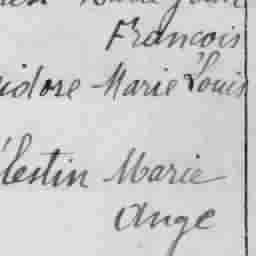 François
idore Marie Louis
lestin Marie
Ange